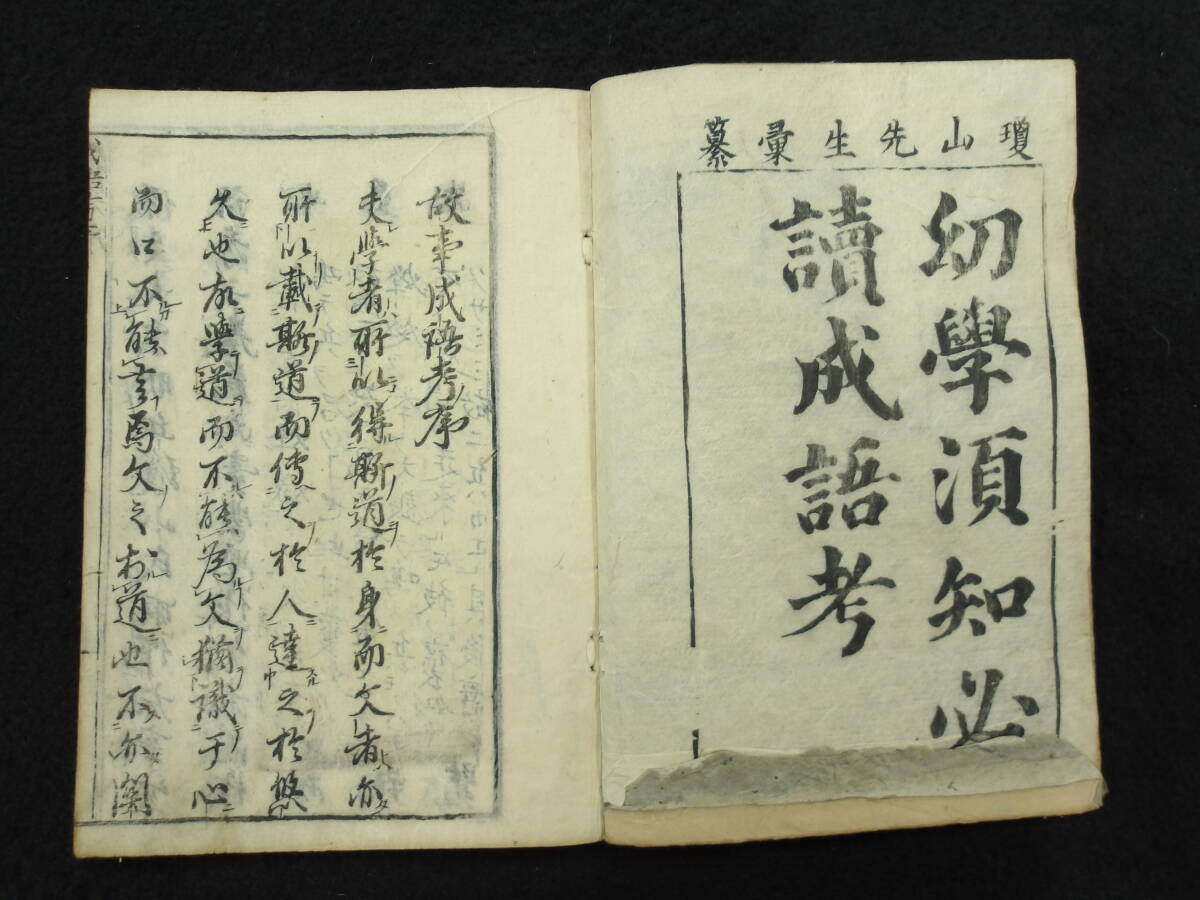 瓊山先生彙纂
幼學須知必
讀成語考
故事成語考序
夫學者所以得斯道於身而文者亦
所以載斯道而傳之於人達之於悠
久也故學道而不能為文猶識于心
而口不能言焉文之於道也不亦関